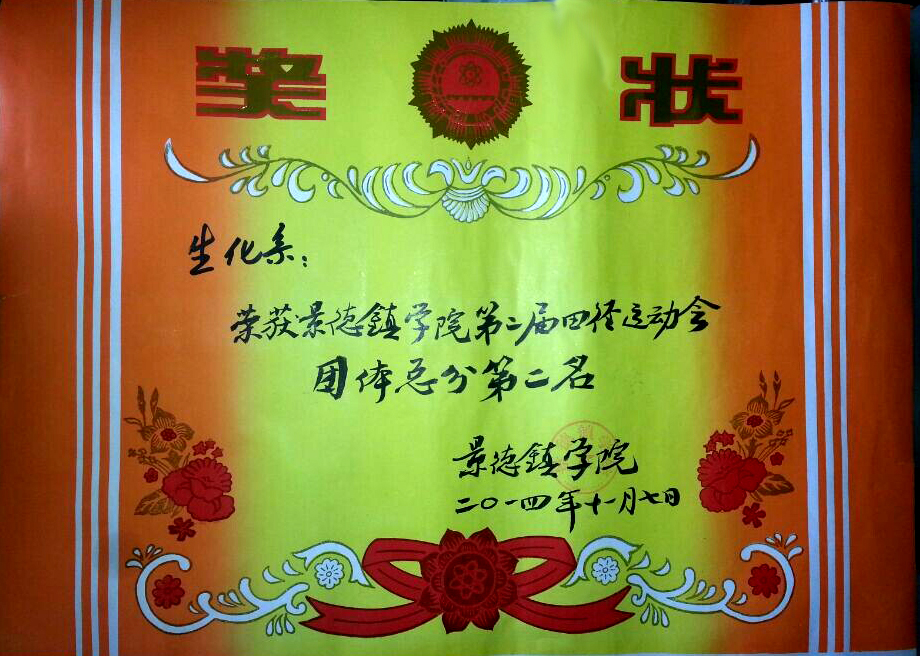 奖状
生化系：
荣获景德鎮学院第二届田径运动会
团体总分第二名
景德鎮学院
二〇一四年十一月七日